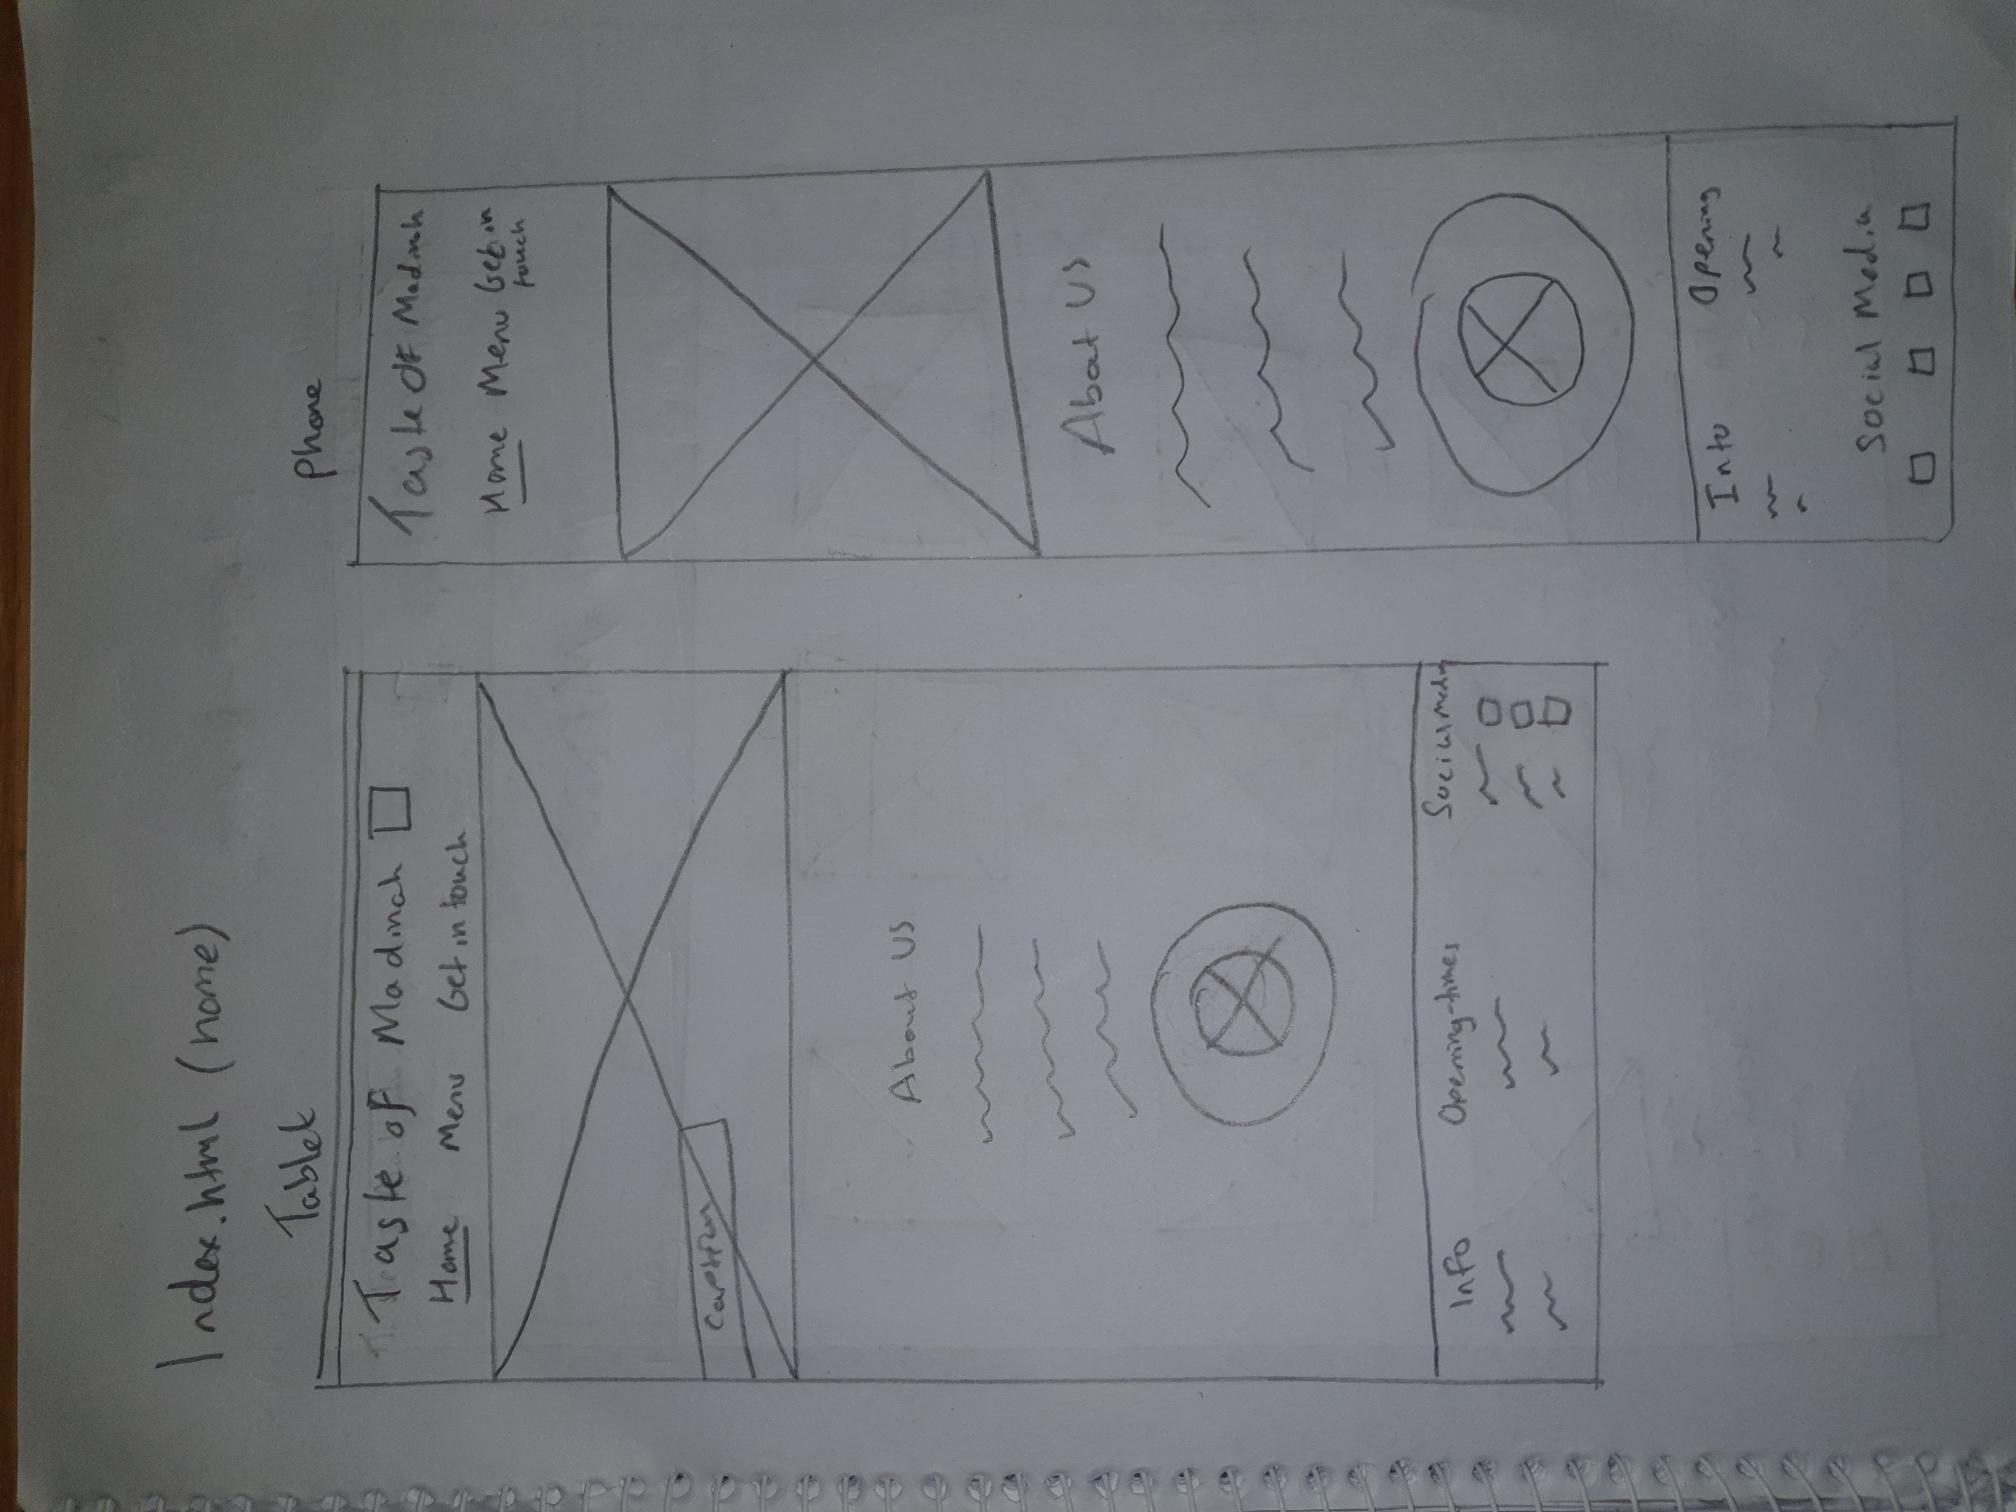 Index.html (home)
Tablet
Taste of Madinah
Home Menu Get in touch
Caption
About US
Info Opening-times Social media
Phone
Taste Of Madinah
Home Menu Get in
touch
About US
Info Opening
Social Media